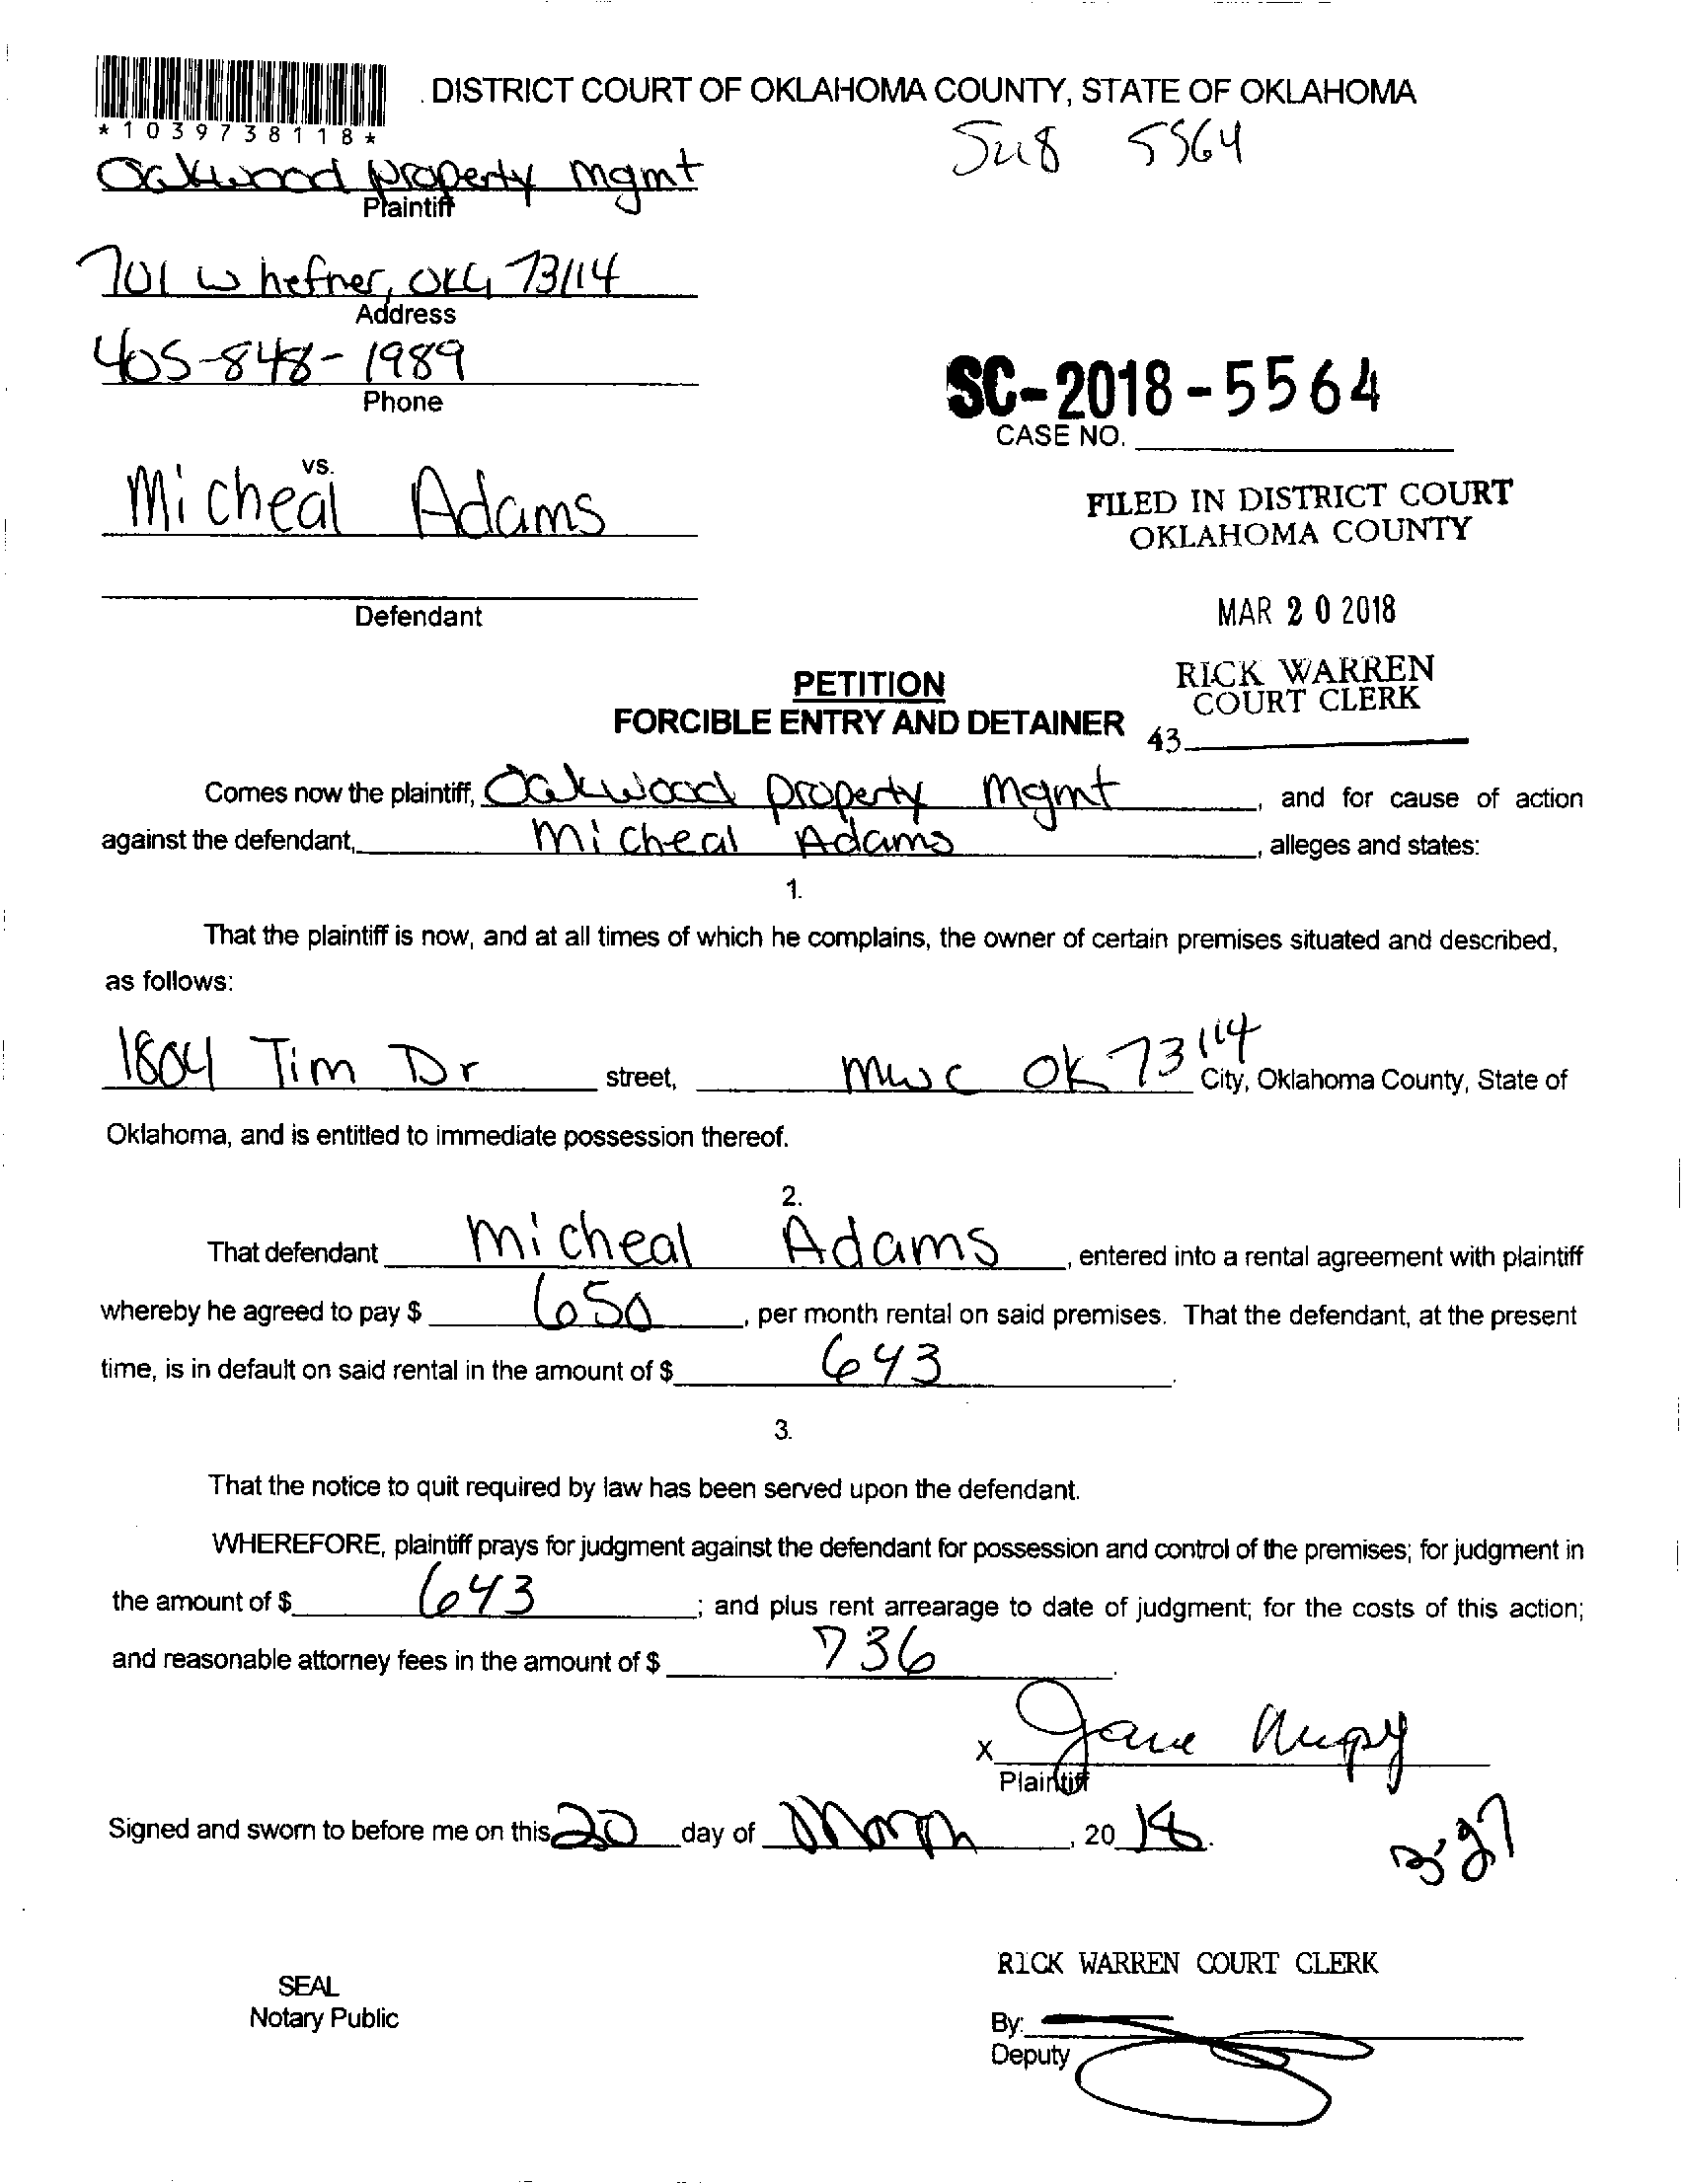 DISTRICT COURT OF OKLAHOMA COUNTY, STATE OF OKLAHOMA
*1039738118*
5564
Oakwood property mgmt
Plaintiff
701 W hefner, OKC, 73114
Address
405-848-1989
Phone
SC-2018-5564
CASE NO.
vs.
Micheal Adams
FILED IN DISTRICT COURT
OKLAHOMA COUNTY
Defendant
MAR 20 2018
RICK WARREN
COURT CLERK
43
PETITION
FORCIBLE ENTRY AND DETAINER
Comes now the plaintiff, Oakwood property mgmt, and for cause of action
against the defendant, Micheal Adams, alleges and states:
1.
That the plaintiff is now, and at all times of which he complains, the owner of certain premises situated and described,
as follows:
1804 Tim Dr street, mwc OK 73114 City, Oklahoma County, State of
Oklahoma, and is entitled to immediate possession thereof.
2.
That defendant Micheal Adams, entered into a rental agreement with plaintiff
whereby he agreed to pay $ 650, per month rental on said premises. That the defendant, at the present
time, is in default on said rental in the amount of $ 643.
3.
That the notice to quit required by law has been served upon the defendant.
WHEREFORE, plaintiff prays for judgment against the defendant for possession and control of the premises; for judgment in
the amount of $ 643; and plus rent arrearage to date of judgment; for the costs of this action;
and reasonable attorney fees in the amount of $ 736.
X Jane
Plaintiff
Signed and sworn to before me on this 20 day of March, 2018.
RICK WARREN COURT CLERK
SEAL
Notary Public
By:
Deputy